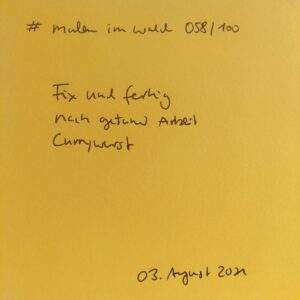 # malen im wald 058/100
Fix und fertig
nach getaner Arbeit
Currywurst
03. August 2021